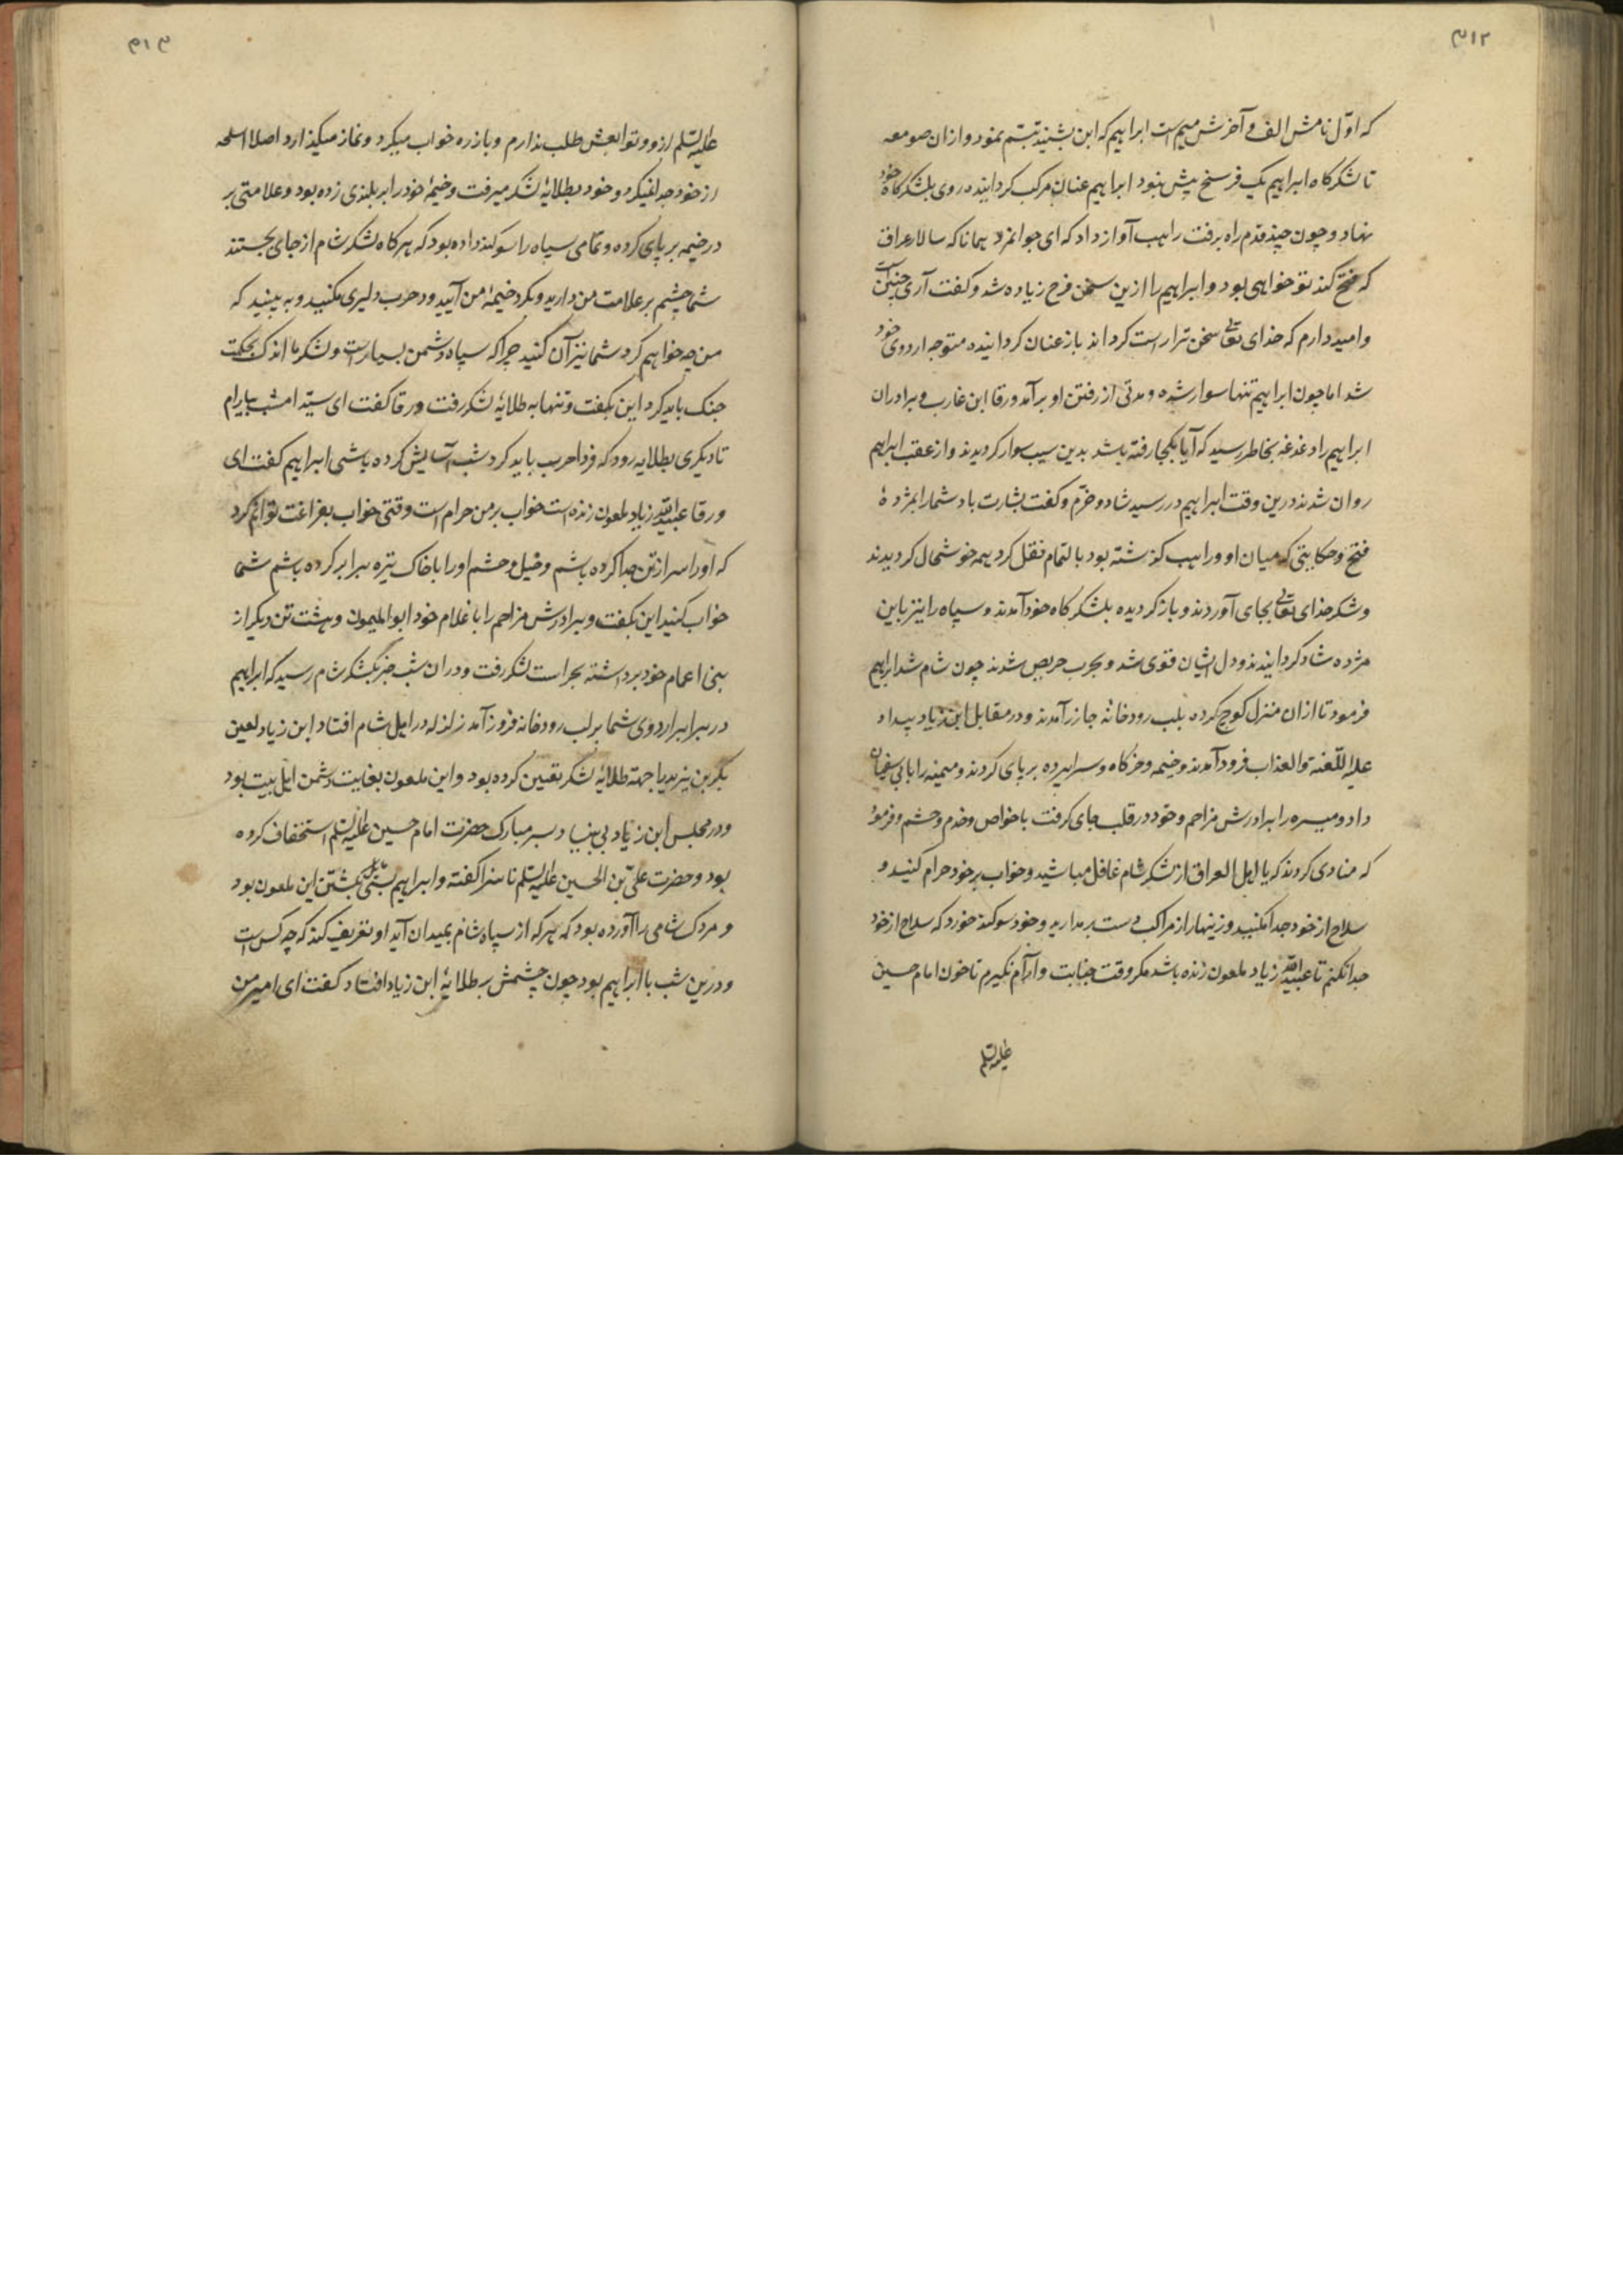 ۳۱۲
که اوّل نامش الف و آخرش میم است ابراهیم که این بشنید تبسّم نمود و از ان صومعه
تا لشکرکاه ابراهیم یک فرسخ پیش نبود ابراهیم عنان مرکب کردانیده روی بلشکرکاه خود
نهاد و چون چند قدم راه برفت راهب آواز داد که ای جوانمرد همانا که سالار عراق
که فتح کند تو خواهی بود و ابراهیم را ازین سخن فرح زیاده شد و کفت آری چنین است
و امید دارم که خدای تعالی سخن ترا راست کرداند باز عنان کردانیده متوجه اردوی خود
شد اما چون ابراهیم تنها سوار شده و مدتی از رفتن او بر آمد ورقا ابن غارب و برادران
ابراهیم را دغدغه بخاطر رسید که آیا بکجا رفته باشد بدین سبب سوار کردیدند و از عقب ابراهیم
روان شدند درین وقت ابراهیم در رسید شاد و خرّم و کفت بشارت باد شما را بمژدهٔ
فتح و حکایتی که میان او و راهب کذشته بود بالتمام نقل کرد همه خوشحال کردیدند
و شکر خدای تعالی بجای آوردند و باز کردیده بلشکرکاه خود آمدند و سپاه را نیز باین
مژده شاد کردانیدند و دل ایشان قوی شد و بحرب حریص شدند چون شام شد ابراهیم
فرمود تا از ان منزل کوچ کرده بلب رودخانه جازر آمدند و در مقابل ابن زیاد بیداد
علیه اللّعنة والعذاب فرود آمدند و خیمه و خرکاه و سراپرده بر پای کردند و میمنه را بابی سفیان
داد و میسره را برادرش مزاحم و خود در قلب جای کرفت با خواص و خدم و حشم و فرمود
که منادی کردند که یا اهل العراق از لشکر شام غافل مباشید و خواب بر خود حرام کنید و
سلاح از خود جدا مکنید و زینهار از مراکب دست بر مدارید و خود سوکند خورد که سلاح از خود
جدا نکنم تا عبیدالله زیاد ملعون زنده باشد مکر وقت جنابت و آرام نکیرم تا خون امام حسین
علیه السّلم
۳۱۳
علیه السّلم از و و توابعش طلب ندارم و با زره خواب میکرد و نماز میکذارد اصلا اسلحه
از خود جدا نمیکرد و خود بطلایهٔ لشکر میرفت و خیمهٔ خود را بر بلندی زده بود و علامتی بر
در خیمه بر پای کرده و تمامی سپاه را سوکند داده بود که هر کاه لشکر شام از جای بجستند
شما چشم بر علامت من دارید و بکرد خیمهٔ من آیید و در حرب دلیری مکنید و به بینید که
من چه خواهم کرد شما نیز آن کنید چرا که سپاه دشمن بسیار است و لشکر ما اندک بحکمت
جنک باید کرد این بکفت و تنها به طلایهٔ لشکر رفت ورقا کفت ای سیّد امشب بیارام
تا دیکری بطلایه رود که فردا حرب باید کرد شب آسایش کرده باشی ابراهیم کفت ای
ورقا عبیدالله زیاد ملعون زنده است خواب بر من حرام است وقتی خواب بفراغت توانم کرد
که او را سر از تن جدا کرده باشم و خیل و حشم او را با خاک تیره برابر کرده باشم شما
خواب کنید این بکفت و برادرش مزاحم را با غلام خود ابو المیمون و هشت تن دیکر از
بنی اعمام خود برداشته بحراست لشکر رفت و در ان شب خبر بلشکر شام رسید که ابراهیم
در برابر اردوی شما بر لب رودخانه فرود آمد زلزله در اهل شام افتاد ابن زیاد لعین
بکر بن یزید را جهة طلایهٔ لشکر تعیین کرده بود و این ملعون بغایت دشمن اهل بیت بود
و در مجلس ابن زیاد بی بنیاد بسر مبارک حضرت امام حسین علیه السّلم استخفاف کرده
بود و حضرت علی بن الحسین علیه السّلم ناسزا کفته و ابراهیم بسی مایل کشتن این ملعون بود
و مردک شامی را آورده بود که هر که از سپاه شام بمیدان آید او تعریف کند که چه کس است
و درین شب با ابراهیم بود چون چشمش بر طلایهٔ ابن زیاد افتاد کفت ای امیر من